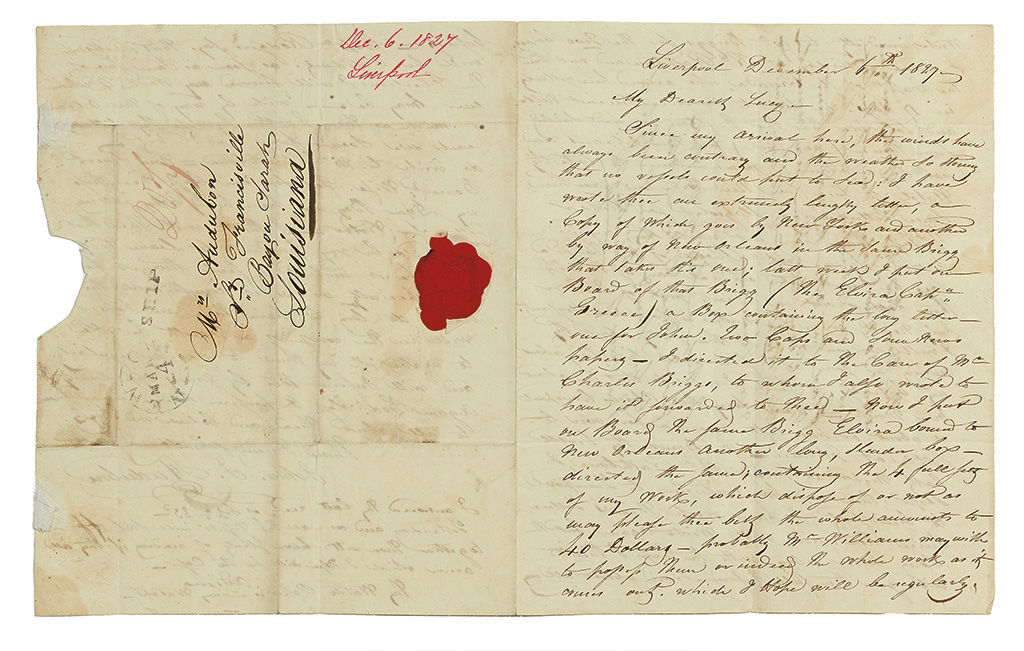 Dec. 6. 1827
Liverpool
Mrs Audubon
St Francisville
Bayou Sarah
Louisiana
SHIP
MAR
4
Liverpool December 6th 1827
My Dearest Lucy
Since my arrival here, the winds have
always been contrary and the weather so stormy
that no vessels could put to Sea: I have
wrote thee an extremely lengthy letter, a
Copy of which goes by New York and another
by way of New Orleans in the same Brigg
that takes this one; last week I put on
Board of that Brigg (The Elvira Capn
Greece) a Box containing the long letter —
one for John. Two Caps and some News
papers — I directed it to the Care of Mr
Charles Briggs, to whom I also wrote to
have it forwarded to Thee — Now I put
on Board the same Brigg Elvira bound to
New Orleans another long, slender box —
directed the same, containing the 4 full sets
of my Work, which dispose of or not as
may please thee best the whole amounts to
40 Dollars — probably Mr Williams may wish
to possess them or indeed the whole work as it
comes out. which I Hope will be regularly.